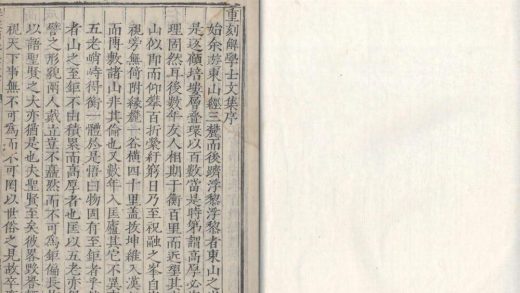 重刻解學士文集序
始余遊東山經三麓而後躋浮黎浮黎者東山之
是這顧培塿層疊環以百數當是時第謂高厚必
理固然耳後數年友人相期于衡百里而近望其
山似即而仰攀百折縈紆窮日乃至祝融之峯自
視旁無倚附緣麓一谷橫四十里蓋拔坤維入漢
而傳數諸山非其倫也又數年入匡廬其它不異
五老峭峙得衡一體於是悟曰物固有至鉅者乎
者山之至鉅不由積累而高厚者也匡以五老亦
譬之形貌兩人戴立豈不嘉然而不可為鉅偏長
以語聖賢之大亦猶是也夫聖賢至矣彼畧毀譽
視天下事無不可為而不可罔以世俗之見故卒